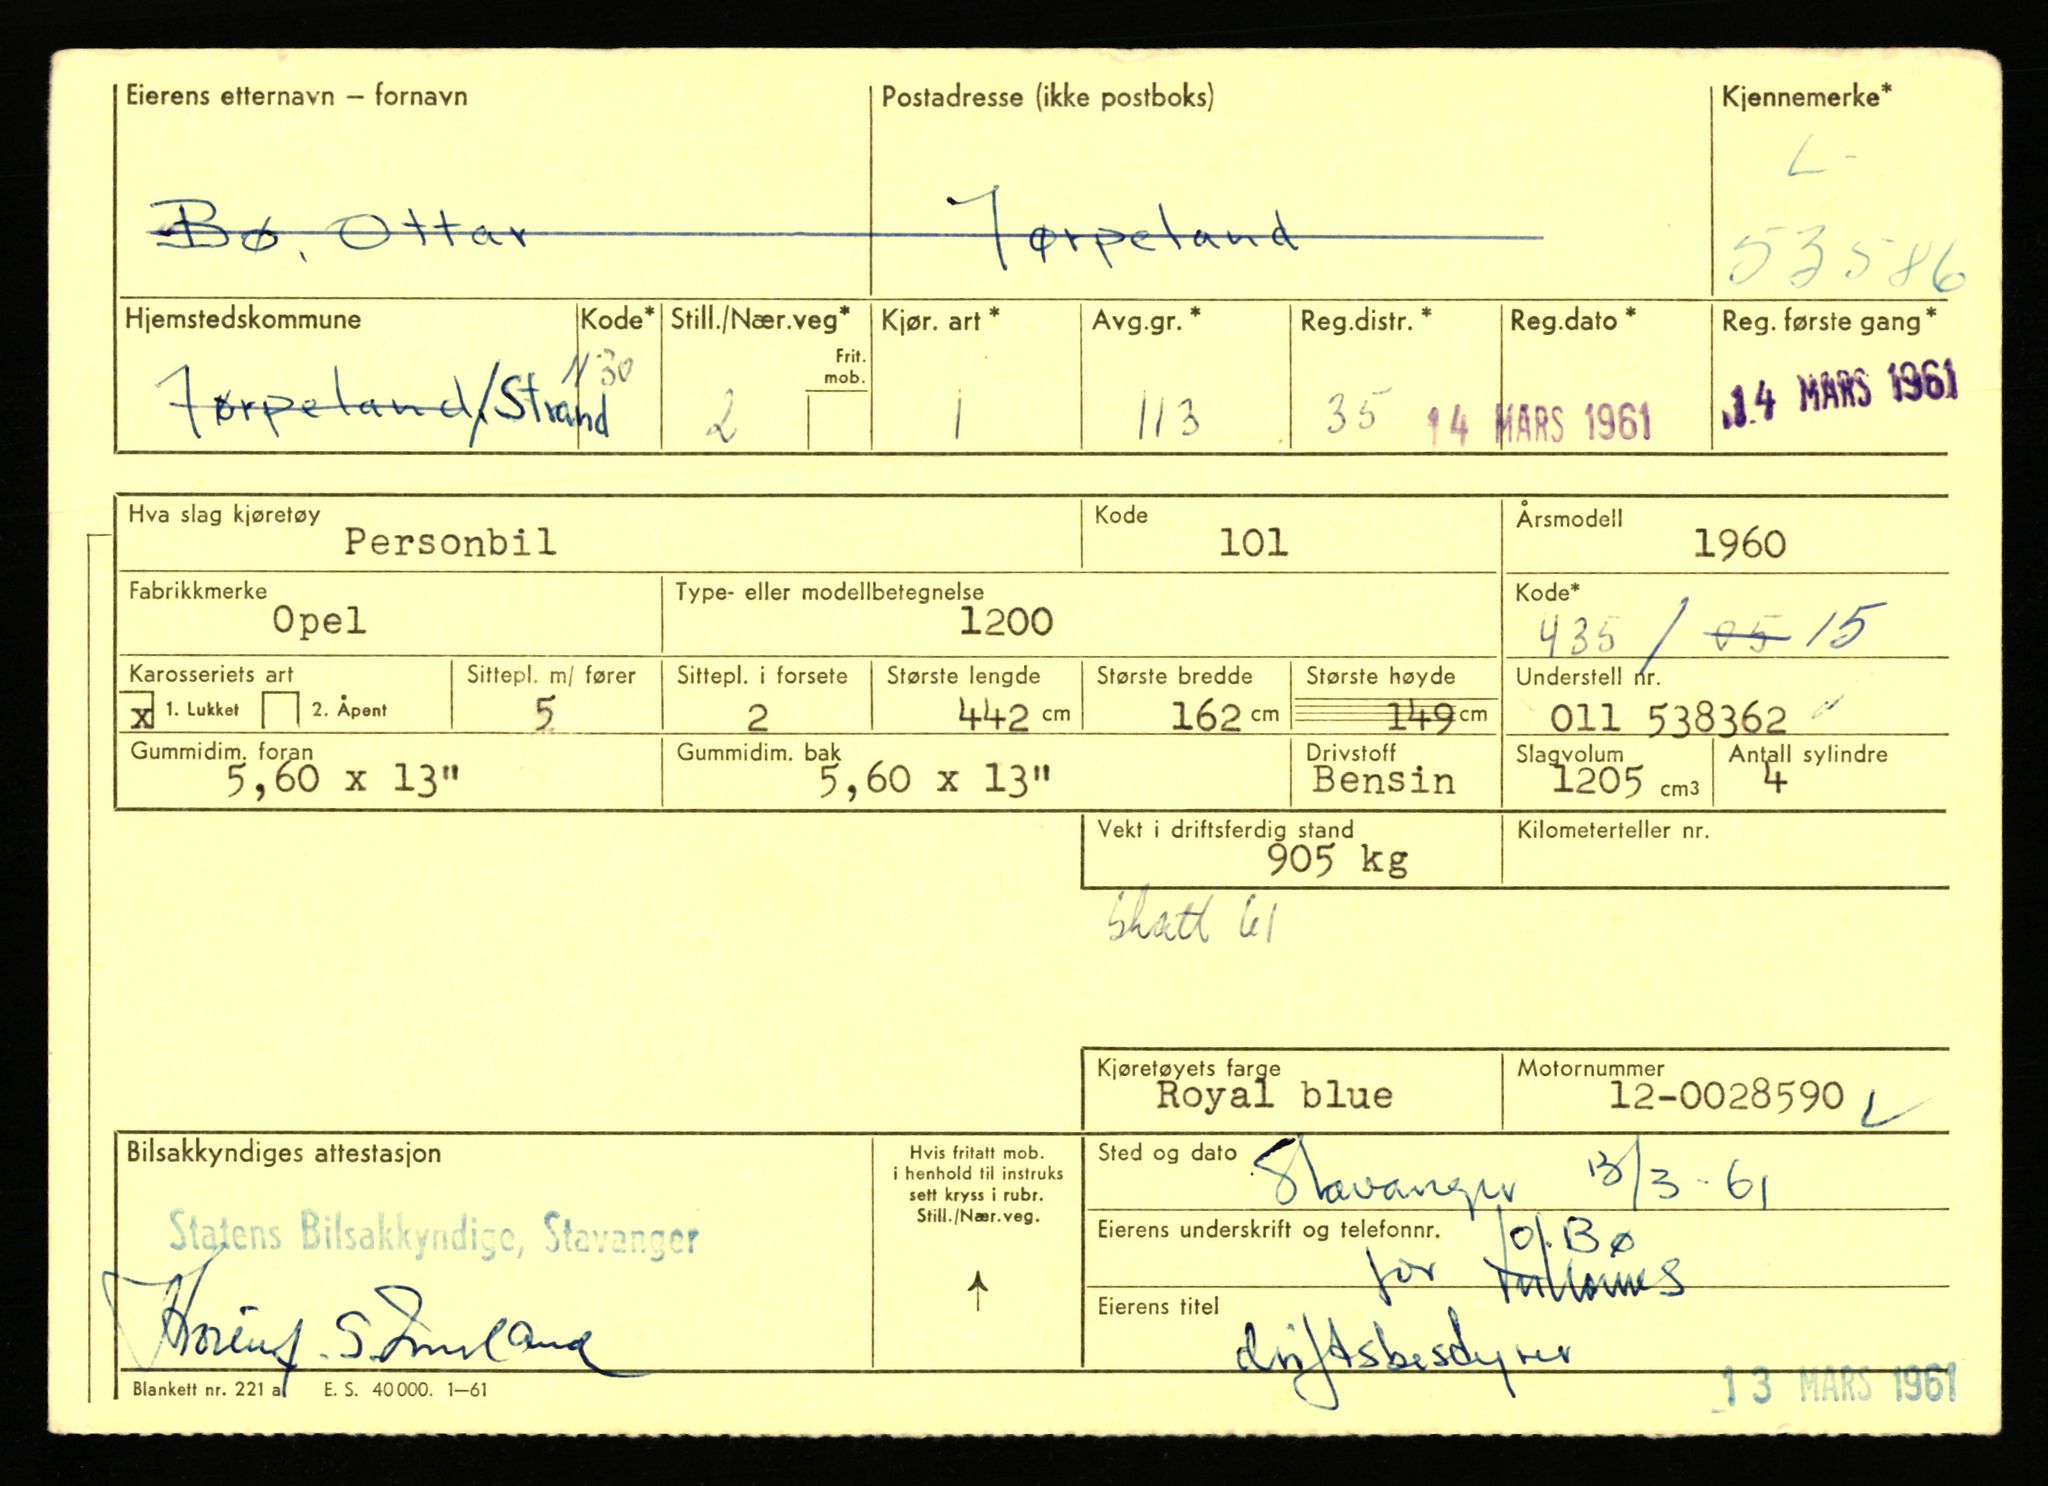 Eierens etternavn – fornavn Postadresse (ikke postboks) Kjennemerke*
L-
Bø, Ottar Jørpeland 53586
Hjemstedskommune Kode* Still./Nær.veg* Kjør. art* Avg.gr.* Reg.distr.* Reg.dato* Reg. første gang*
Frit. mob.
Jørpeland/Strand 1130 2 1 113 35 14 MARS 1961 14 MARS 1961
Hva slag kjøretøy Kode Årsmodell
Personbil 101 1960
Fabrikkmerke Type- eller modellbetegnelse Kode*
Opel 1200 435 / 05 15
Karosseriets art Sittepl. m/ fører Sittepl. i forsete Største lengde Største bredde Største høyde Understell nr.
x 1. Lukket 2. Åpent 5 2 442 cm 162 cm 149 cm 011 538362
Gummidim. foran Gummidim. bak Drivstoff Slagvolum Antall sylindre
5,60 x 13" 5,60 x 13" Bensin 1205 cm3 4
Vekt i driftsferdig stand Kilometerteller nr.
905 kg
Skatt 61
Kjøretøyets farge Motornummer
Royal blue 12-0028590
Bilsakkyndiges attestasjon Hvis fritatt mob. Sted og dato Stavanger 13/3-61
i henhold til instruks
sett kryss i rubr.
Still./Nær.veg.
Statens Bilsakkyndige, Stavanger Eierens underskrift og telefonnr. O. Bø
for
Eierens titel
driftsbestyrer
Blankett nr. 221 a E. S. 40000. 1–61 13 MARS 1961